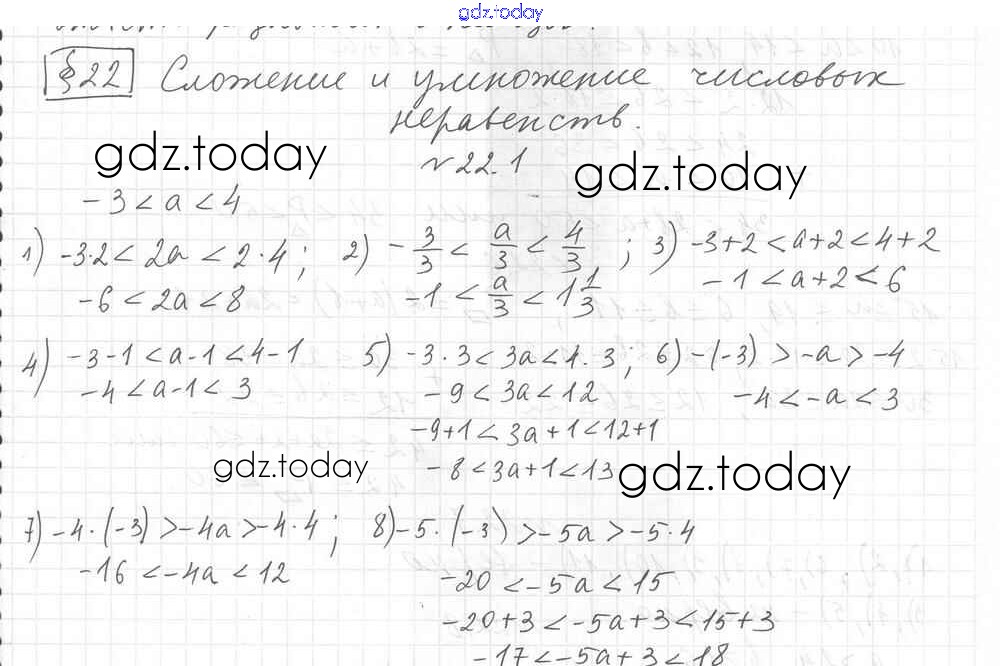 gdz.today
§22 Сложение и умножение числовых
неравенств.
gdz.today
№22.1
gdz.today
-3 < a < 4
1) -3·2 < 2a < 2·4; 2) -3/3 < a/3 < 4/3; 3) -3+2 < a+2 < 4+2
-6 < 2a < 8 -1 < a/3 < 1 1/3 -1 < a+2 < 6
4) -3-1 < a-1 < 4-1 5) -3·3 < 3a < 4·3; 6) -(-3) > -a > -4
-4 < a-1 < 3 -9 < 3a < 12 -4 < -a < 3
-9+1 < 3a+1 < 12+1
gdz.today -8 < 3a+1 < 13 gdz.today
7) -4·(-3) > -4a > -4·4; 8) -5·(-3) > -5a > -5·4
-16 < -4a < 12 -20 < -5a < 15
-20+3 < -5a+3 < 15+3
-17 < -5a+3 < 18